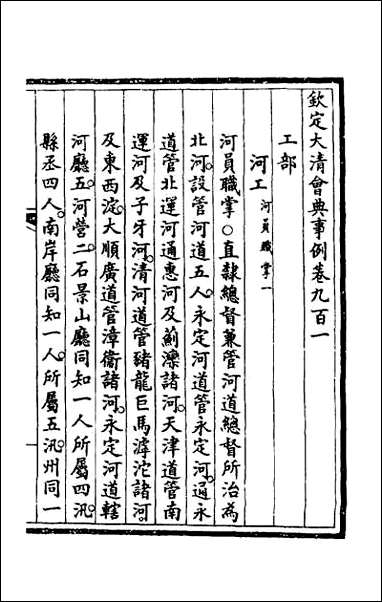 欽定大清會典事例卷九百一
工部
河工河員職掌一
河員職掌○直隸總督兼管河道總督所治為
北河。設管河道五人。永定河道管永定河。通永
道管北運河通惠河及薊灤諸河。天津道管南
運河及子牙河。清河道管豬龍巨馬滹沱諸河。
及東西淀。大順廣道管漳衞諸河。永定河道轄
河廳五。河營二。石景山廳同知一人所屬四汛。
縣丞四人。南岸廳同知一人。所屬五汛。州同一